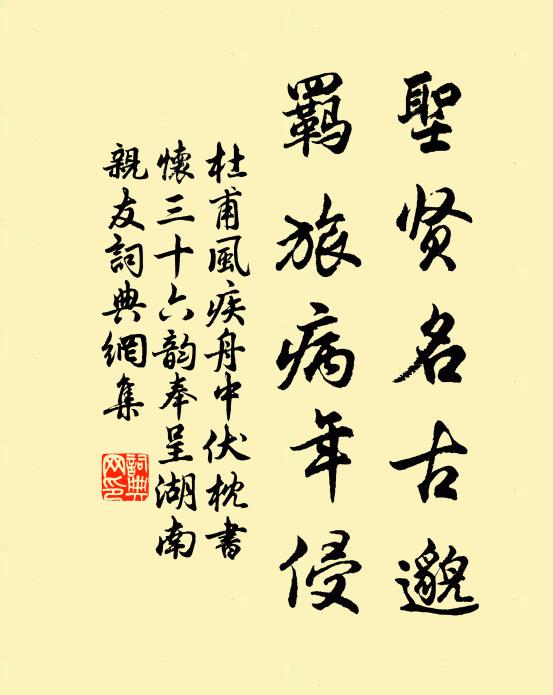 聖贤名古邈
羁旅病年侵
杜甫風疾舟中伏枕書
懷三十六韵奉呈湖南
親友詞典網集
詞典
网印